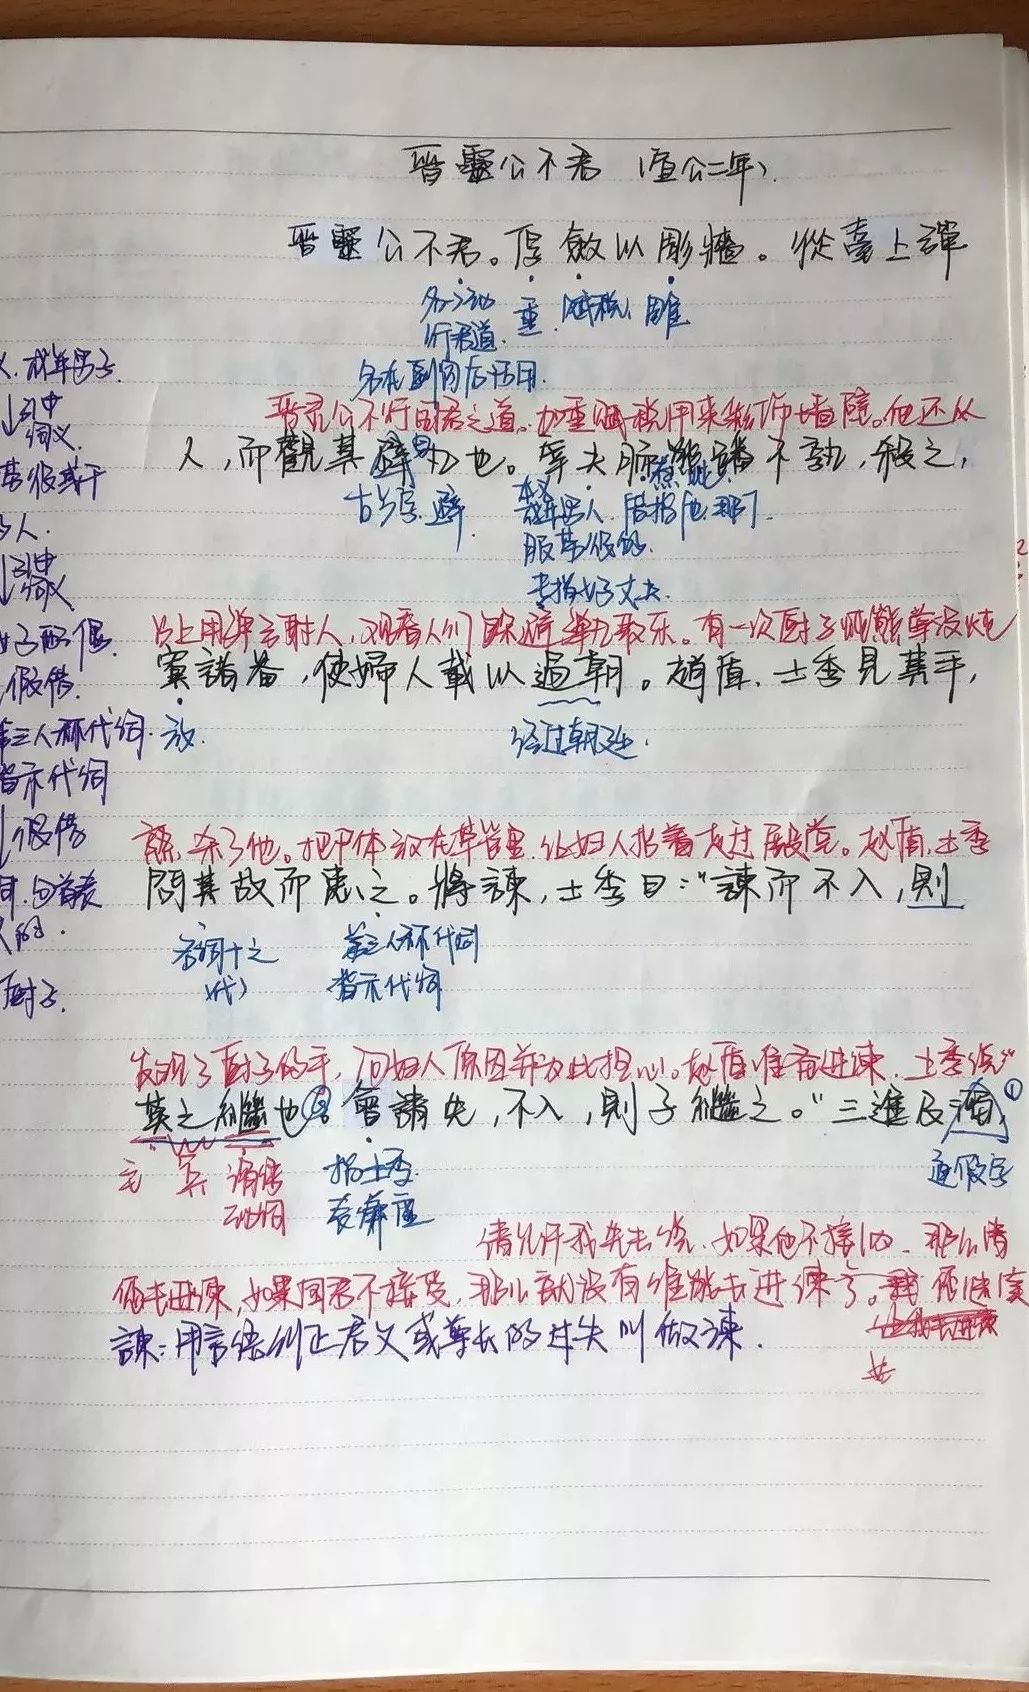 晋靈公不君 (宣公二年).
晋靈公不君。厚斂以彫牆。從臺上彈
名→动 重. 赋税. 雕
行君道.
名在副词后活用.
晋灵公不行国君之道。加重赋税用来彩饰墙障。他还从
人,而觀其辟丸也。宰夫胹熊蹯不熟,殺之,
煮
古今字 避 本义
成年男人. 借指他.那个.
服劳役的.
专指好丈夫
台上用弹弓射人,观看人们躲避弹丸取乐。有一次厨子炖熊掌没炖
寘諸畚,使婦人載以過朝。趙盾、士季見其手,
放. 经过朝廷.
熟,杀了他。把尸体放在草筐里,让妇人抬着走过殿堂。赵盾,士季
問其故而患之。將諫,士季曰:"諫而不入,則
名词+之 第三人称代词
(代) 指示代词
发现了厨子的手,问妇人原因并为此担心。赵盾准备进谏,士季说"
莫之繼也。會請先,不入,則子繼之。"三進及溜①
主 宾 谓语 指士季 通假字
动词 表廉虚
请允许我先去说.如果他不接纳.那么请
您去进谏,如果国君不接受,那么就没有谁能去进谏了。
諫:用言语纠正君父或尊长的过失叫做谏.
义.成年男子.
↓引申
词义
劳役或干
的人.
↓引申
词义
假借.
第三人称代词.
指示代词
↓假借
厨子.